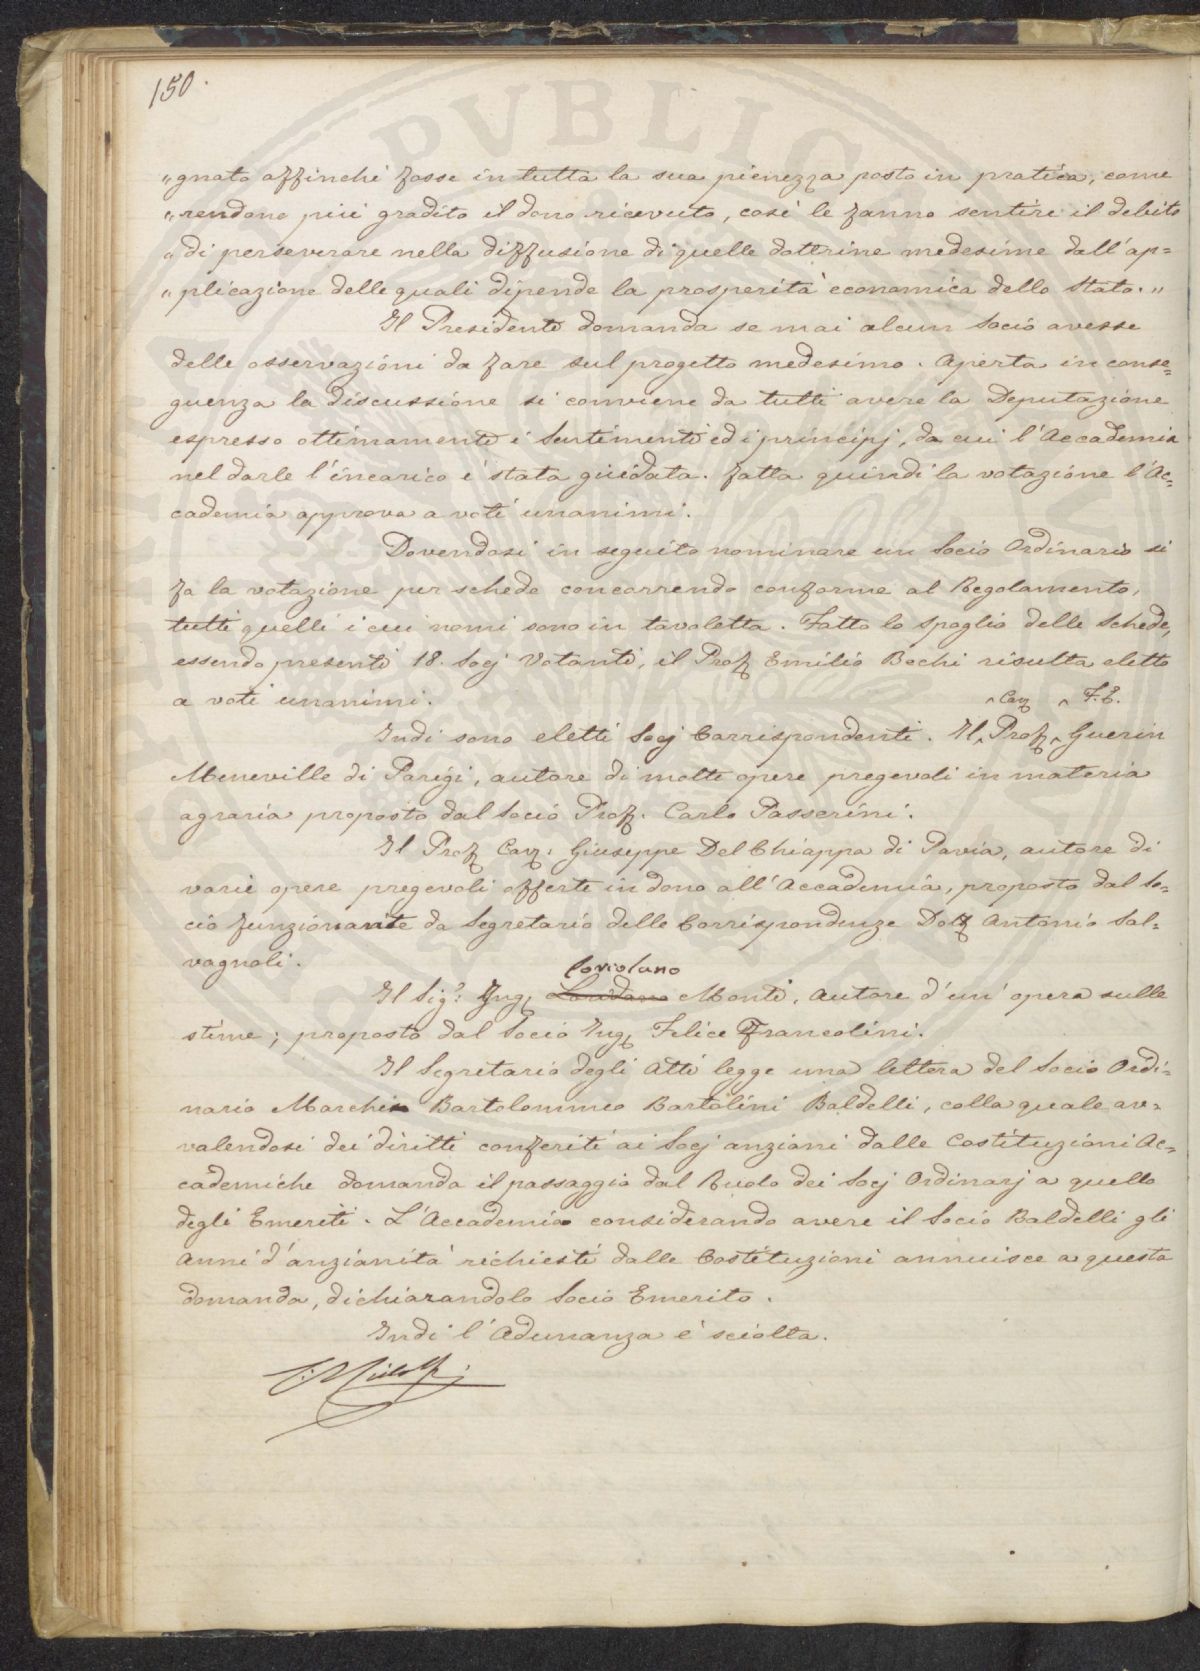 150.
PVBLIC
„gnato affinchè fosse in tutta la sua pienezza posto in pratica, come
„rendono più gradito il dono ricevuto, così le fanno sentire il debito
„di perseverare nella diffusione di quelle dottrine medesime dall'ap=
„plicazione delle quali dipende la prosperità economica dello Stato.„
Il Presidente domanda se mai alcun Socio avesse
delle osservazioni da fare sul progetto medesimo. Aperta in conse=
guenza la discussione si conviene da tutti avere la Deputazione
espresso ottimamente i Sentimenti ed i principj, da cui l'Accademia
nel darle l'incarico è stata guidata. Fatta quindi la votazione l'Ac=
cademia approva a voti unanimi.
Dovendosi in seguito nominare un Socio Ordinario si
fa la votazione per schede concorrendo conforme al Regolamento,
tutti quelli i cui nomi sono in tavoletta. Fatto lo spoglio delle Schede,
essendo presenti 18. Socj Votanti, il Prof. Emilio Bechi risulta eletto
a voti unanimi.
^ Cav. ^ F. E.
Indi sono eletti Socj Corrispondenti. Il ^ Prof. ^ Guerin
Meneville di Parigi, autore di molte opere pregevoli in materia
agraria proposto dal Socio Prof. Carlo Passerini.
Il Prof. Cav. Giuseppe Del Chiappa di Pavia, autore di
varie opere pregevoli offerte in dono all'Accademia, proposto dal So=
cio funzionante da Segretario delle Corrispondenze Dott. Antonio Sal=
vagnoli.
Coriolano
Il Sig.r Ing. Monti, Autore d'un' opera sulle
stime; proposto dal Socio Ing. Felice Francolini.
Il Segretario degli Atti legge una lettera del Socio Ordi=
nario March. Bartolommeo Bartolini Baldelli, colla quale av=
valendosi dei diritti conferiti ai Socj anziani dalle Costituzioni Ac=
cademiche domanda il passaggio dal Ruolo dei Socj Ordinarj a quello
degli Emeriti. L'Accademia considerando avere il Socio Baldelli gli
Anni d'anzianità richiesti dalle Costituzioni annuisce a questa
domanda, dichiarandolo Socio Emerito.
Indi l'Adunanza è sciolta.